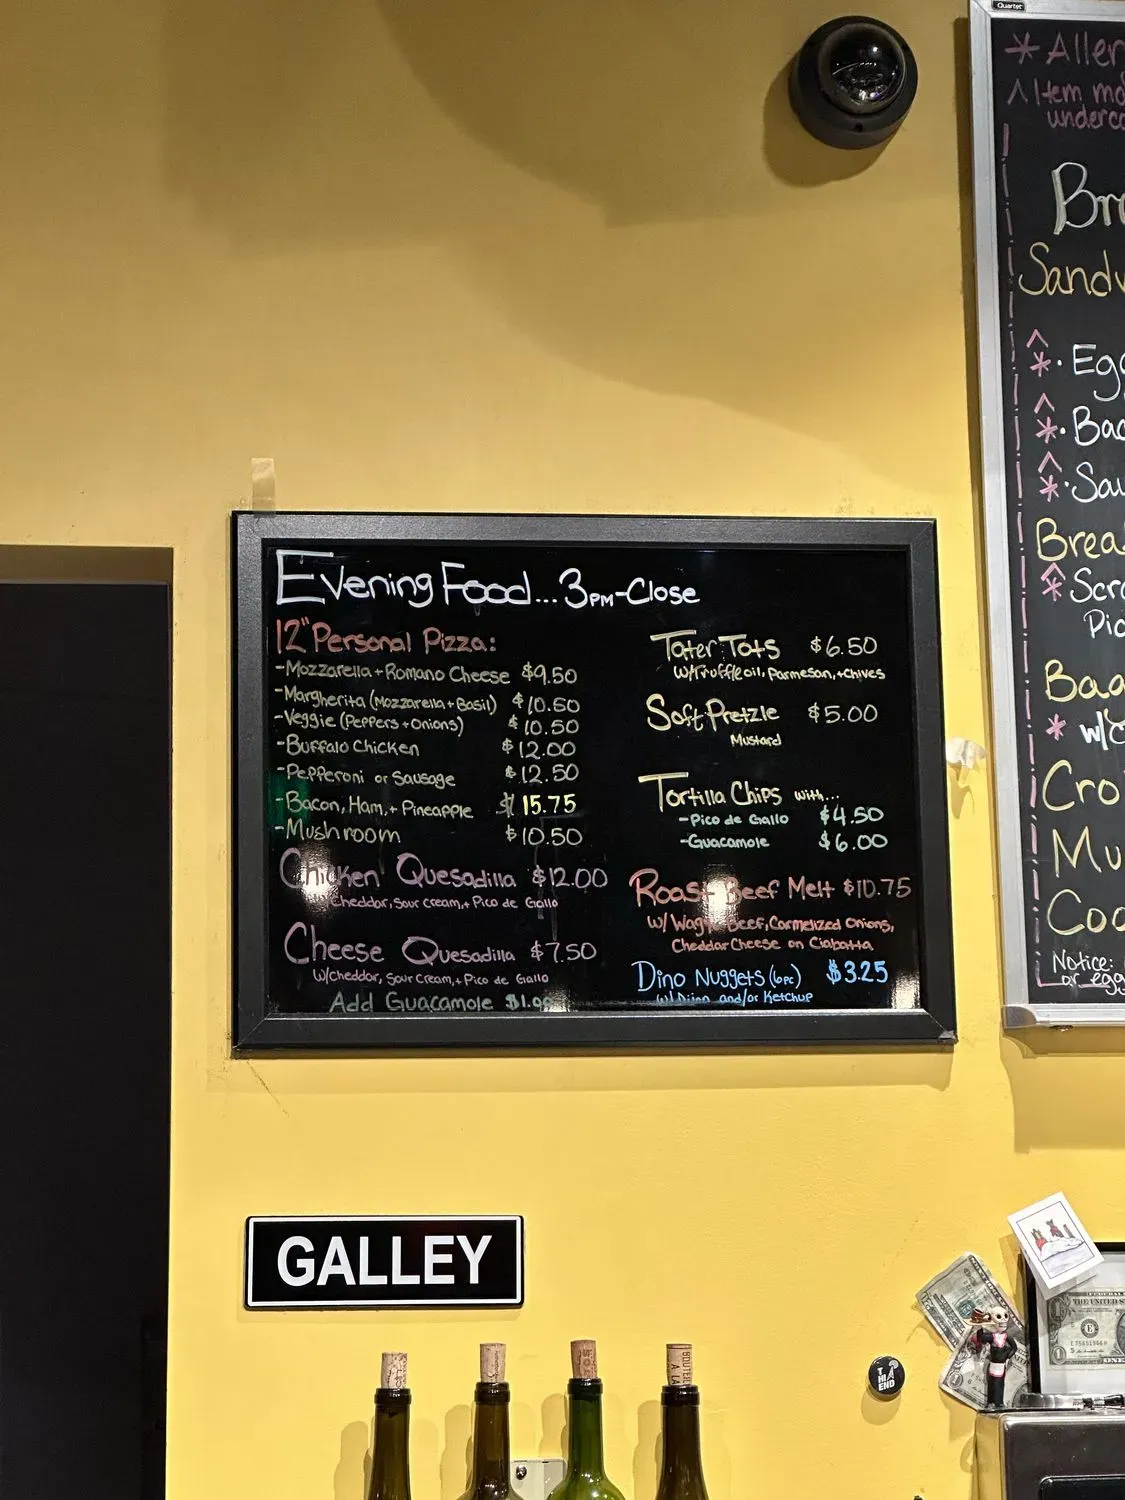 Quartet
* Aller
^ Item ma
underco
Br
Sandw
^
*. Egg
^
*. Bac
^
*. Sau
Brea
^
* Scr
Pic
Bag
* w/C
Cro
Mu
Coo
Notice:
or egg
Evening Food... 3PM-Close
12" Personal Pizza:
-Mozzarella + Romano Cheese $9.50
-Margherita (Mozzarella + Basil) $10.50
-Veggie (Peppers + Onions) $10.50
-Buffalo Chicken $12.00
-Pepperoni or Sausage $12.50
-Bacon, Ham, + Pineapple $15.75
-Mushroom $10.50
Chicken Quesadilla $12.00
Cheddar, Sour Cream, + Pico de Gallo
Cheese Quesadilla $7.50
w/Cheddar, Sour Cream, + Pico de Gallo
Add Guacamole $1.00
Tater Tots $6.50
w/Truffle oil, Parmesan, + Chives
Soft Pretzle $5.00
Mustard
Tortilla Chips with...
-Pico de Gallo $4.50
-Guacamole $6.00
Roast Beef Melt $10.75
w/ Wagyu Beef, Carmelized Onions,
Cheddar Cheese on Ciabatta
Dino Nuggets (6pc) $3.25
w/ Dijon and/or Ketchup
GALLEY
THE
END
THE UNITED S
ONE